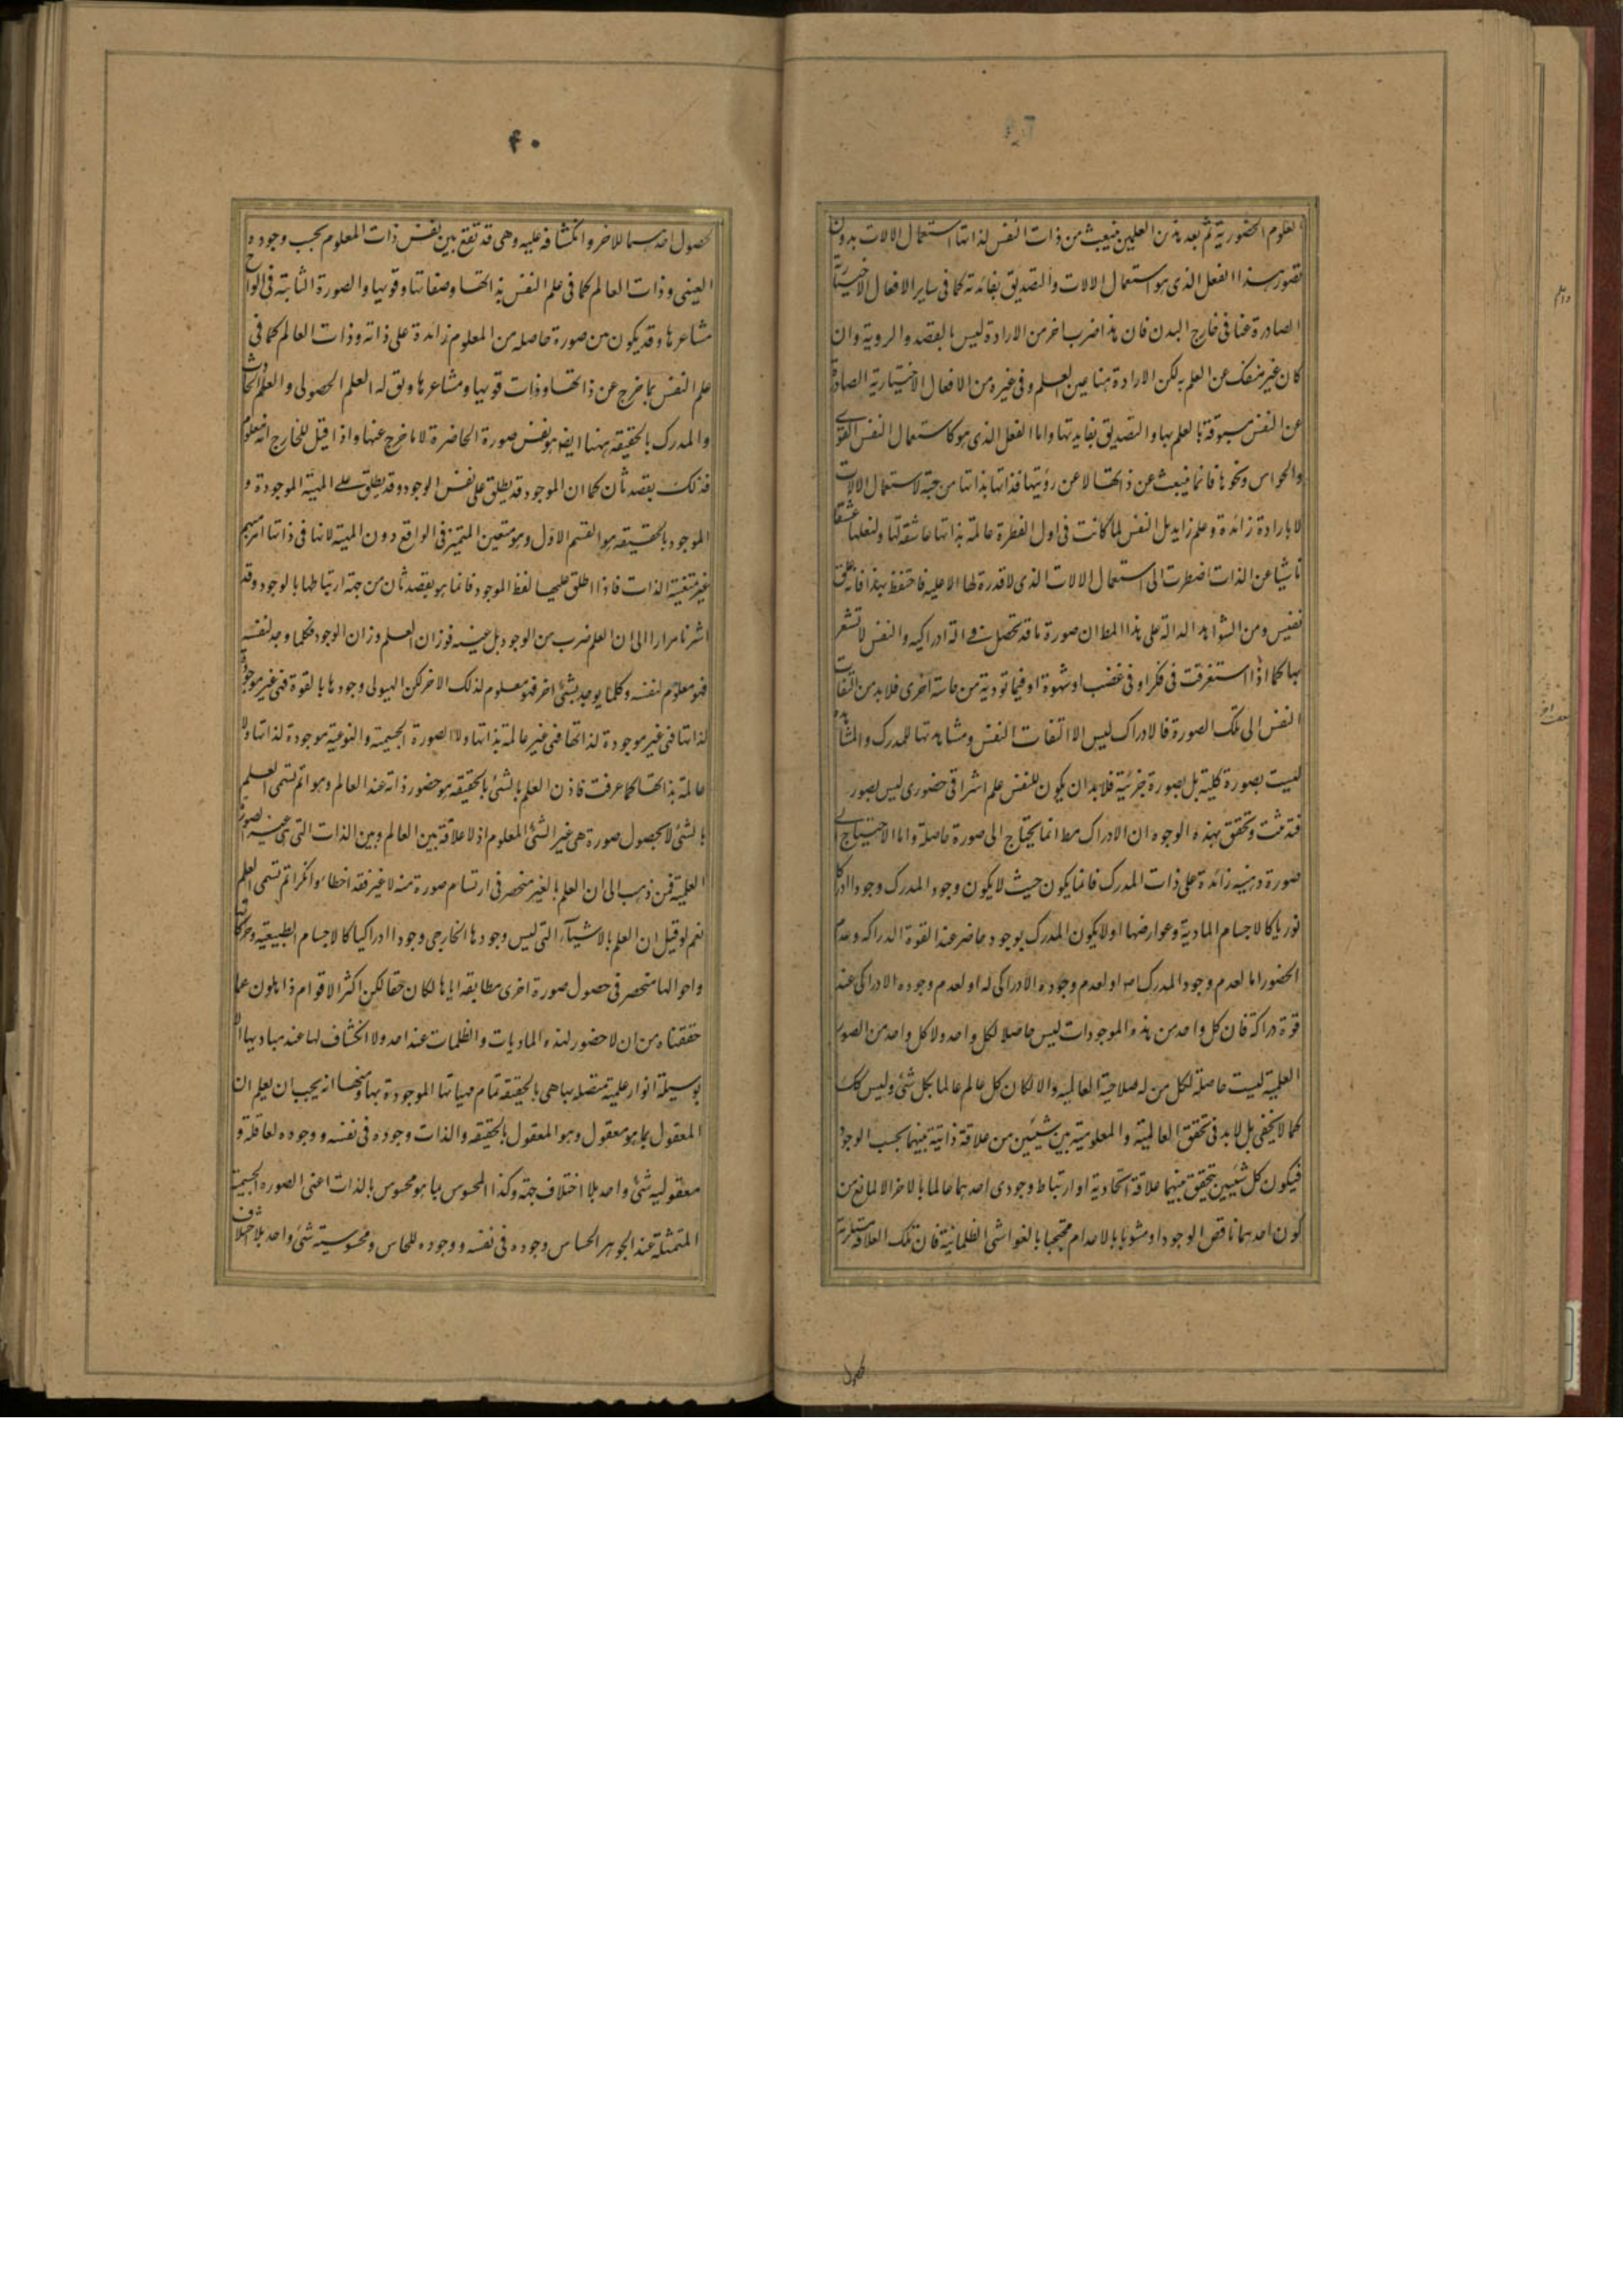 العلوم الحضورية ثم بعد هذين العلمين ينبعث من ذات النفس لذاتها استعمال الالات بدون
تصور هذا الفعل الذى هو استعمال الالات والتصديق بفائدته كما فى ساير الافعال الاختيارية
الصادرة عنا فى خارج البدن فان هذا ضرب اخر من الارادة ليس بالقصد والروية وان
كان غير منفك عن العلم به لكن الارادة هنا عين العلم وفى غيره من الافعال الاختيارية الصادرة
عن النفس مسبوقة بالعلم بها والتصديق بفايدتها واما الفعل الذى هو كاستعمال النفس القوى
والحواس ونحوها فانما ينبعث عن ذاتها لا عن رؤيتها فذاتها بذاتها موجبة لاستعمال الالات
لا بارادة زائدة وعلم زايد بل النفس لما كانت فى اول الفطرة عالمة بذاتها عاشقة لها ولفعلها عشقا
ناشيا عن الذات اضطرت الى استعمال الالات الذى لا قدرة لها الا عليه فاحتفظ بهذا فانه علق
نفيس ومن الشواهد الدالة على هذا المط ان صورة ما قد تحصل فى الة ادراكية والنفس لا تشعر
بها كما اذا استغرقت فى فكر او فى غضب او شهوة او فيما تودية من حاسة اخرى فلا بد من التفات
النفس الى تلك الصورة فالادراك ليس الا التفات النفس ومشاهدتها للمدرك والمشاهدة
ليست بصورة كلية بل بصورة جزئية فلا بد ان يكون للنفس علم اشراقى حضورى ليس بصور
فقد ثبت وتحقق بهذه الوجوه ان الادراك مط انما يحتاج الى صورة حاصلة واما الاحتياج الى
صورة ذهنية زائدة على ذات المدرك فانما يكون حيث لا يكون وجود المدرك وجودا ادراكيا
نوريا كالاجسام المادية وعوارضها او لا يكون المدرك بوجوده حاضر عند القوة الدراكة وعدم
الحضور اما لعدم وجود المدرك او لعدم وجوده الادراكى له او لعدم وجوده الادراكى عند
قوة دراكة فان كل واحد من هذه الموجودات ليس حاصلا لكل واحد ولا كل واحد من الصور
العلمية ليست حاصلة لكل من له صلاحية العالمية والا لكان كل عالم عالما بكل شئ وليس كك
كما لا يخفى بل لا بد فى تحقق العالمية والمعلومية بين شيئين من علاقة ذاتية بينهما بحسب الوجود
فيكون كل شيئين يتحقق بينهما علاقة اتحادية او ارتباط وجودى احدهما عالما بالاخر الا لمانع من
كون احدهما ناقص الوجود او مشوبا بالاعدام محتجبا بالغواشى الظلمانية فان تلك العلاقة مستلزمة
لحصول
۴۰
لحصول احدهما للاخر وانكشافه عليه وهى قد تقع بين نفس ذات المعلوم بحسب وجوده
العينى وذات العالم كما فى علم النفس بذاتها وصفاتها وقويها والصورة الثابتة فى الواح
مشاعرها وقد يكون من صورة حاصله من المعلوم زائدة على ذاته وذات العالم كما فى
علم النفس بما خرج عن ذاتها وذات قويها ومشاعرها ويق له العلم الحصولى والعلم الحادث
والمدرك بالحقيقة ههنا ايضا هو نفس صورة الحاضرة لا ما خرج عنها واذا قيل للخارج انه معلوم
فذلك بقصد ثان كما ان الموجود قد يطلق على نفس الوجود وقد يطلق على المهية الموجودة و
الموجود بالحقيقة هو القسم الاول وهو متعين المتميز فى الواقع دون المهية لانها فى ذاتها امر مبهم
غير متعينة الذات فاذا اطلق عليها لفظ الموجود فانما هو بقصد ثان من جهة ارتباطها بالوجود وقد
اشرنا مرارا الى ان العلم ضرب من الوجود بل عينه فوزان العلم وزان الوجود فكلما وجد لنفسه
فهو معلوم لنفسه وكلما يوجد بشئ اخر فهو معلوم لذلك الاخر لكن الهيولى وجودها بالقوة فهى غير موجودة
لذاتها فهى غير موجودة لذاتها فهى غير عالمة بذاتها ولا الصورة الجسمية والنوعية موجودة لذاتها ولا
عالمة بذاتها كما عرفت فاذن العلم بالشئ بالحقيقة هو حضور ذاته عند العالم وهو اتم قسمى العلم
بالشئ لا بحصول صورة هى غير الشئ المعلوم اذ لا علاقة بين العالم وبين الذات التى هى غير الصورة
العلمية فمن ذهب الى ان العلم بالغير منحصر فى ارتسام صورة منه لا غير فقد اخطا وانكر اتم قسمى العلم
نعم لو قيل ان العلم بالاشياء التى ليس وجودها الخارجى وجودا ادراكيا كالاجسام الطبيعية وحركاتها
واحوالها منحصر فى حصول صورة اخرى مطابقه اياها لكان حقا لكن اكثر الاقوام ذاهلون عما
حققناه من ان لا حضور لهذه الماديات والظلمات عند احد ولا انكشاف لها عند مباديها الا
بوسيلة انوار علمية متصله بها هى بالحقيقة تمام مهياتها الموجودة بها ومنها انه يجب ان يعلم ان
المعقول بما هو معقول وهو المعقول بالحقيقه والذات وجوده فى نفسه ووجوده لعاقله و
معقوليه شئ واحد بلا اختلاف جهة وكذا المحسوس بما هو محسوس بالذات اعنى الصوره الجسمية
المتمثلة عند الجوهر الحساس وجوده فى نفسه ووجوده للحاس ومحسوسيته شئ واحد بلا اختلاف